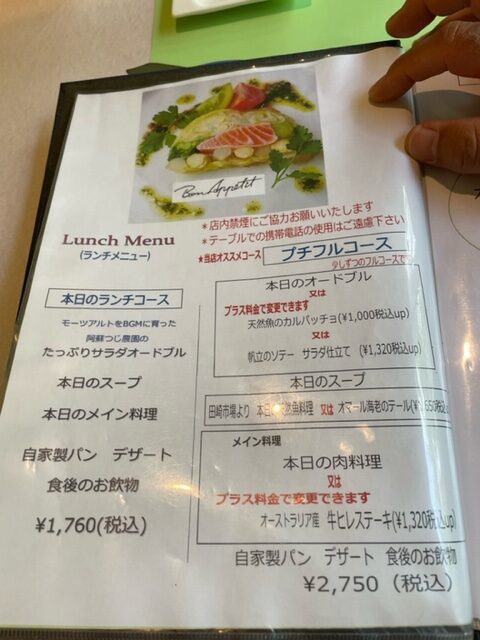 Bon Appetit
*店内禁煙にご協力お願いいたします
*テーブルでの携帯電話の使用はご遠慮下さい
Lunch Menu
(ランチメニュー)
本日のランチコース
モーツアルトをBGMに育った
阿蘇つじ農園の
たっぷりサラダオードブル
本日のスープ
本日のメイン料理
自家製パン デザート
食後のお飲物
¥1,760(税込)
★当店オススメコース プチフルコース
少しずつのフルコースです
本日のオードブル
又は
プラス料金で変更できます
天然魚のカルパッチョ(¥1,000税込up)
又は
帆立のソテー サラダ仕立て (¥1,320税込up)
本日のスープ
田崎市場より 本日の天然魚料理 又は オマール海老のテール(¥1,650税込
メイン料理
本日の肉料理
又は
プラス料金で変更できます
オーストラリア産 牛ヒレステーキ(¥1,320税込up)
自家製パン デザート 食後のお飲物
¥2,750(税込)